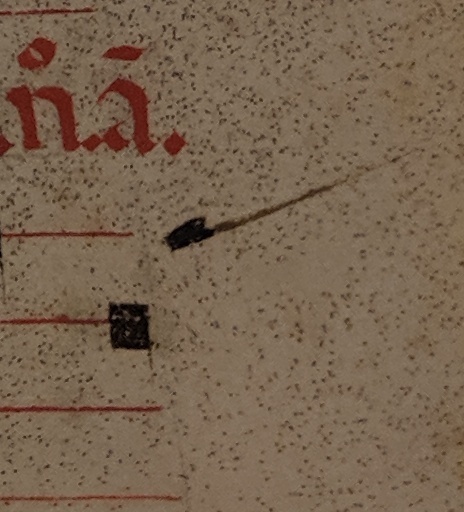 n̊.ā.